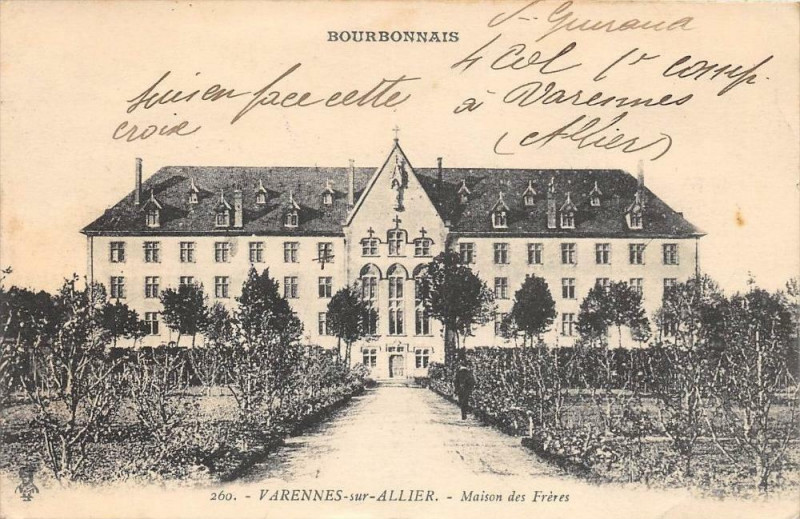 BOURBONNAIS
S. Guiraud
4 Col 1e comp
à Varennes
(Allier)
Suis en face cette
croix
260. - VARENNES-sur-ALLIER. - Maison des Frères